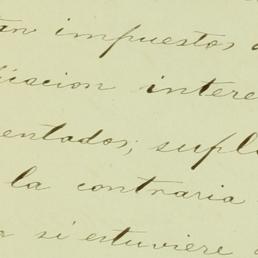 an impuestos
acion intere
entados; supl
la contraria
si estuviere